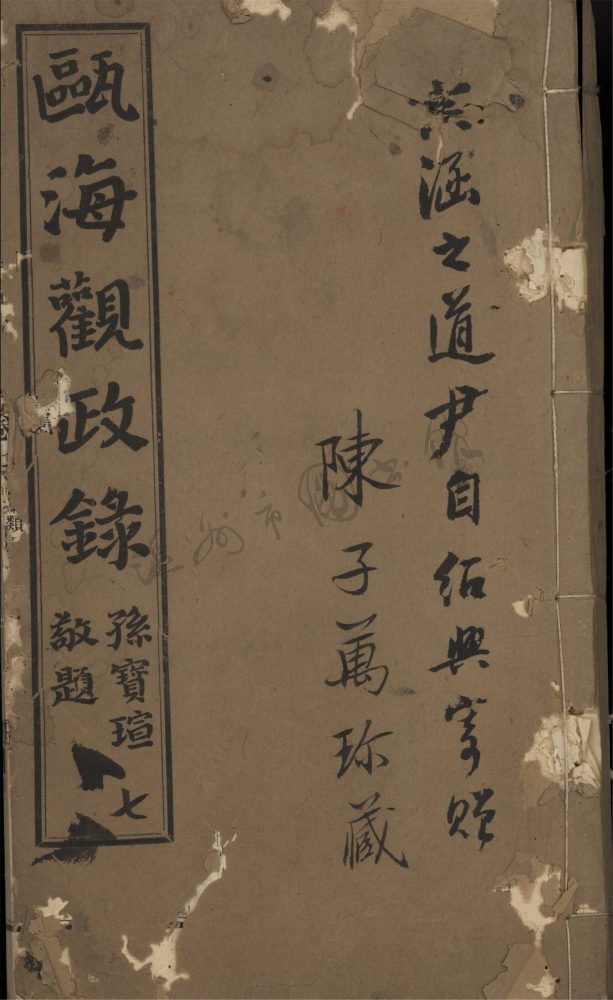 黃涵之道尹自紹興寄贈
陳子萬珎藏
甌海觀政錄
孫寶瑄
敬題
七
類